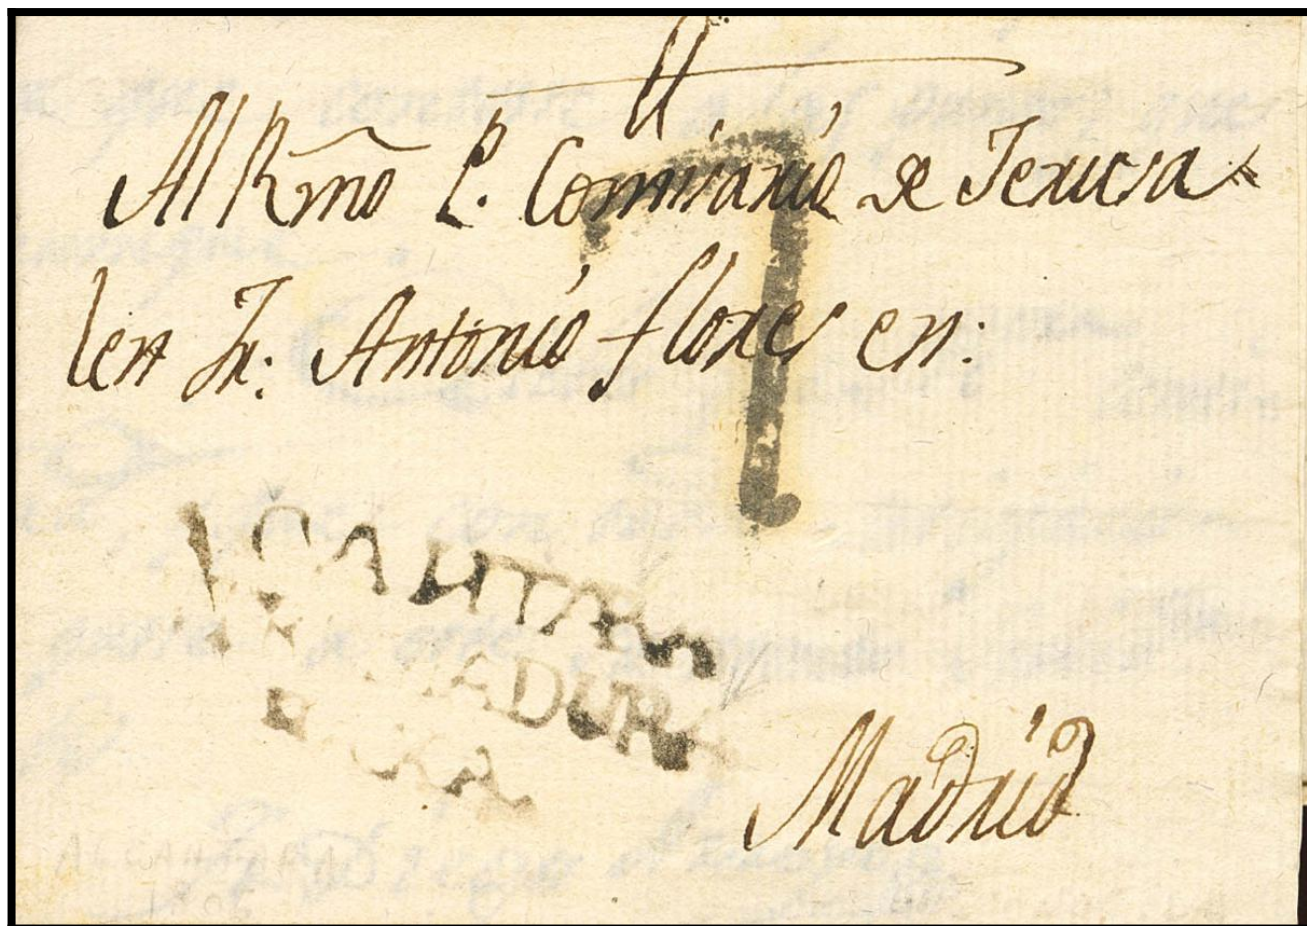 Al Rmo P. Comisario de Jerusa
len Fr: Antonio flores en:
7
ALCANTARA
MADURA
Madrid